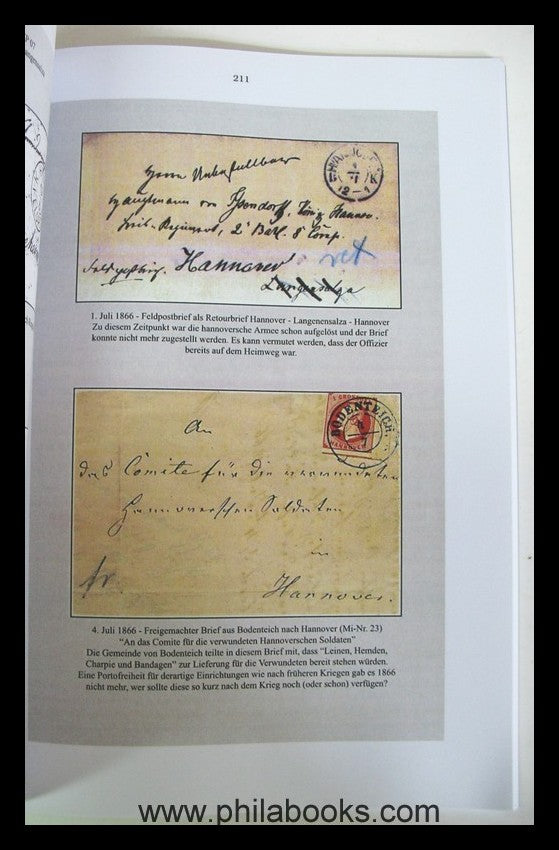 211
Hauptmann von
Hannover
ret
Langensalza
1. Juli 1866 - Feldpostbrief als Retourbrief Hannover - Langenensalza - Hannover
Zu diesem Zeitpunkt war die hannoversche Armee schon aufgelöst und der Brief
konnte nicht mehr zugestellt werden. Es kann vermutet werden, dass der Offizier
bereits auf dem Heimweg war.
BODENTEICH
An
das Comite für die verwundeten
Hannoverschen Soldaten
in
Hannover.
4. Juli 1866 - Freigemachter Brief aus Bodenteich nach Hannover (Mi-Nr. 23)
“An das Comite für die verwundeten Hannoverschen Soldaten”
Die Gemeinde von Bodenteich teilte in diesem Brief mit, dass “Leinen, Hemden,
Charpie und Bandagen” zur Lieferung für die Verwundeten bereit stehen würden.
Eine Portofreiheit für derartige Einrichtungen wie nach früheren Kriegen gab es 1866
nicht mehr, wer sollte diese so kurz nach dem Krieg noch (oder schon) verfügen?
www.philabooks.com